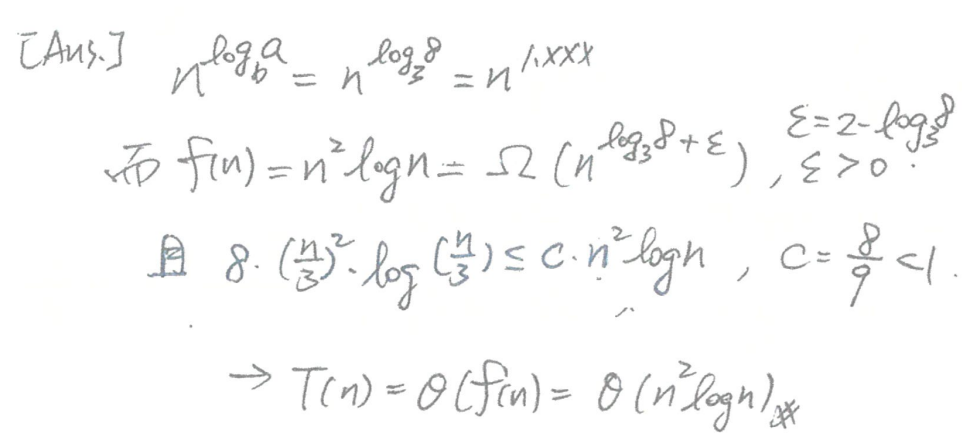 [Ans.] n^{log_b a} = n^{log_3 8} = n^{1.xxx}
而 f(n) = n² log n = Ω (n^{log_3 8 + ε}), ε = 2 - log_3 8, ε > 0.
且 8·(n/3)²·log(n/3) ≤ c·n² log n, c = 8/9 < 1.
→ T(n) = θ(f(n) = θ(n² log n)#